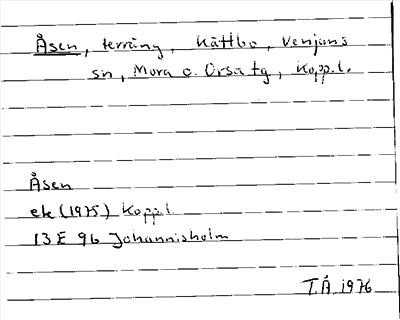 Åsen, terräng, Kättbo, Venjans
sn, Mora o. Orsa tg, Kopp.l.
Åsen
ek (1975) Kopp.l.
13 E 9b Johannisholm
T.Å. 1976